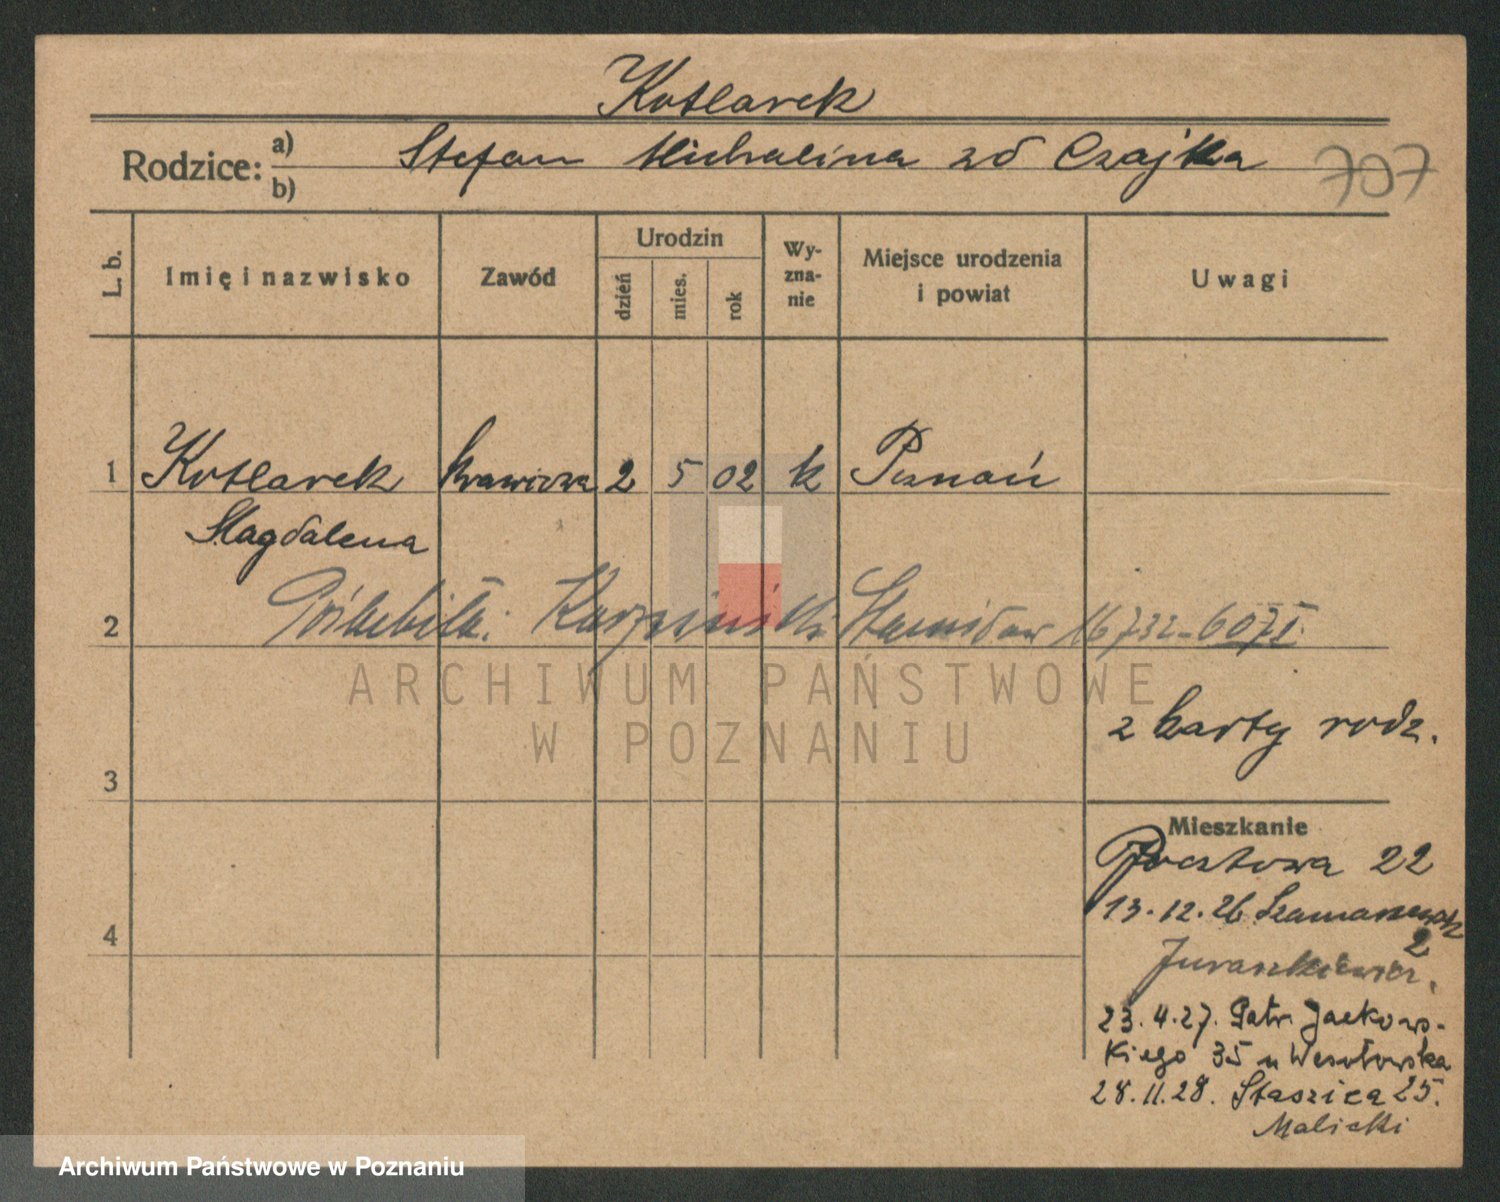 Kotlarek
Rodzice: a) Stefan Michalina zd Czajka 707
b)
L. b. Imię i nazwisko Zawód Urodzin dzień mies. rok Wyznanie Miejsce urodzenia i powiat Uwagi
1 Kotlarek Krawiczka 2 5 02 k Poznań
Magdalena
2 Stanisław 16732-6071
ARCHIWUM PAŃSTWOWE
W POZNANIU
z karty rodz.
3
Mieszkanie
Pocztowa 22
13.12.26
2
4
Juraszkiewicz.
23.4.27. Patr. Jackows-
kiego 35 u Wesołowska
28.11.28. Staszica 25.
Malicki
Archiwum Państwowe w Poznaniu